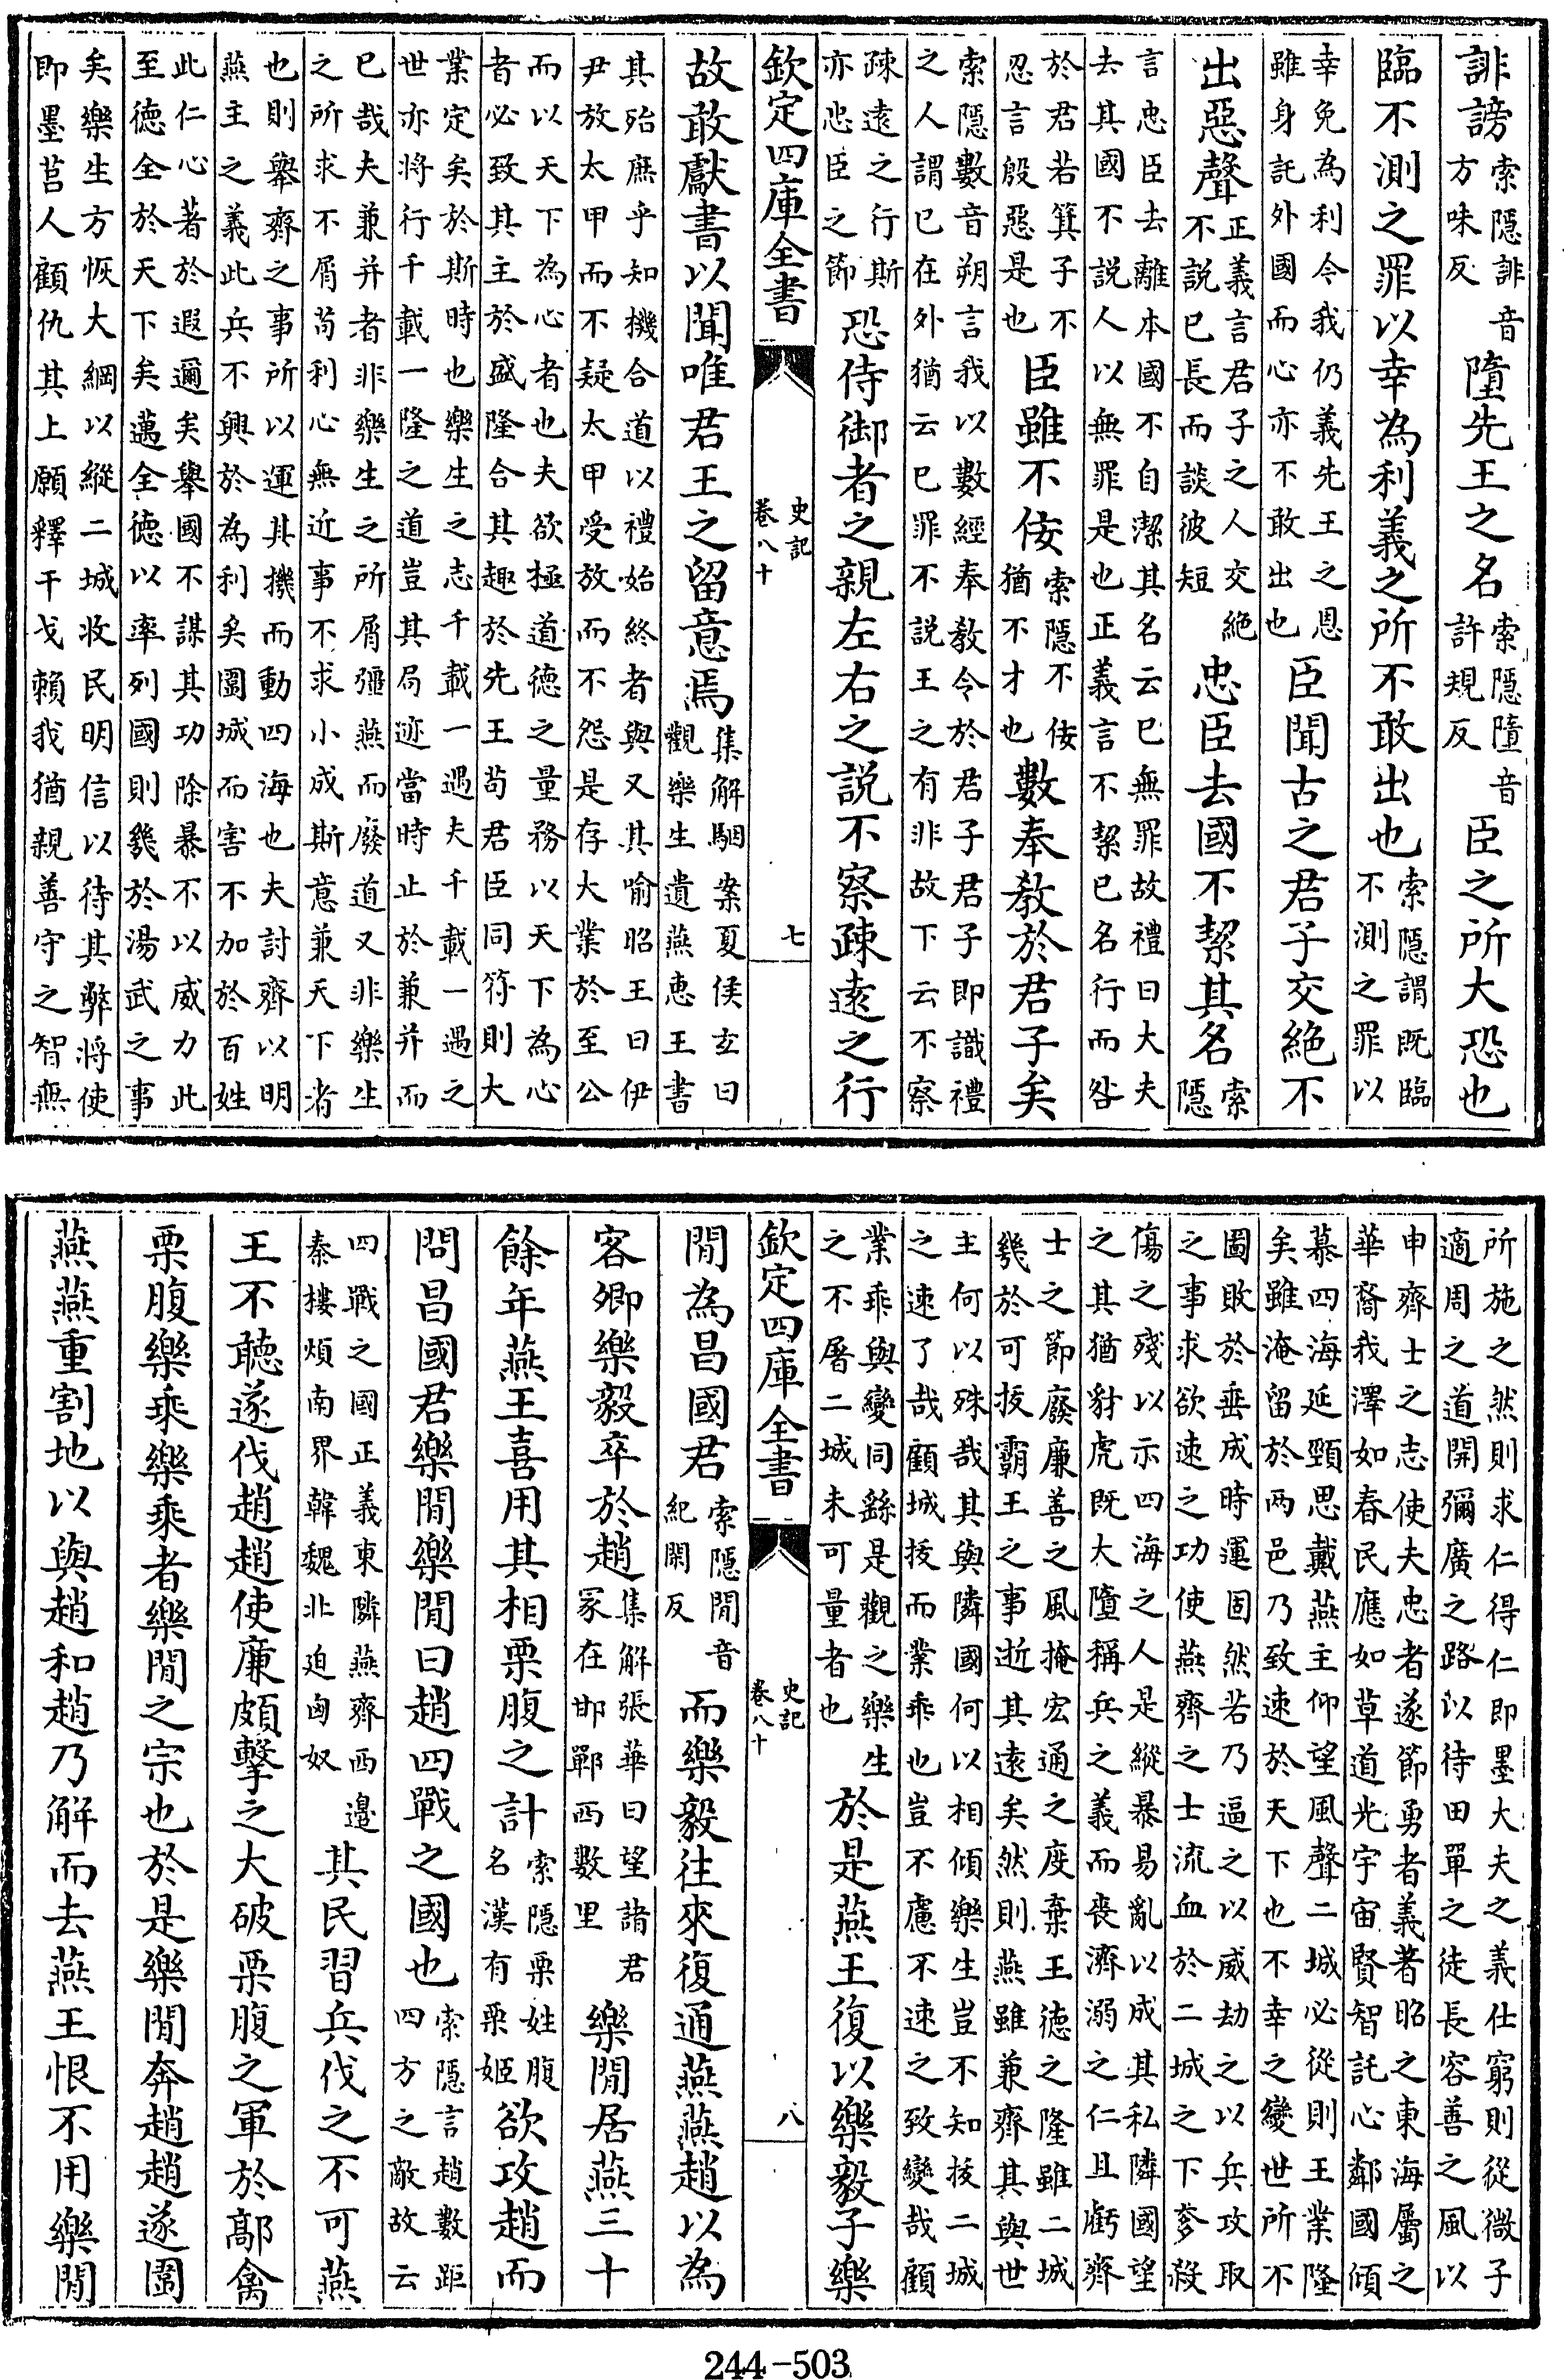 誹謗索隱誹音方味反墮先王之名索隱墮音許規反臣之所大恐也
臨不測之罪以幸為利義之所不敢出也索隱謂既臨不測之罪以
幸免為利今我仍義先王之恩雖身託外國而心亦不敢出也臣聞古之君子交絶不
出惡聲正義言君子之人交絶不説已長而談彼短忠臣去國不絜其名索隱
言忠臣去離本國不自潔其名云已無罪故禮曰大夫去其國不説人以無罪是也正義言不絜已名行而咎
於君若箕子不忍言殷惡是也臣雖不佞索隱不佞猶不才也數奉教於君子矣
索隱數音朔言我以數經奉教令於君子君子即識禮之人謂已在外猶云已罪不説王之有非故下云不察
疎遠之行斯亦忠臣之節恐侍御者之親左右之説不察疎遠之行
欽定四庫全書 史記卷八十 七
故敢獻書以聞唯君王之留意焉集解駰案夏侯玄曰觀樂生遺燕惠王書
其殆庶乎知機合道以禮始終者與又其喻昭王曰伊尹放太甲而不疑太甲受放而不怨是存大業於至公
而以天下為心者也夫欲極道德之量務以天下為心者必致其主於盛隆合其趣於先王苟君臣同符則大
業定矣於斯時也樂生之志千載一遇夫千載一遇之世亦將行千載一隆之道豈其局迹當時止於兼并而
已哉夫兼并者非樂生之所屑彊燕而廢道又非樂生之所求不屑苟利心無近事不求小成斯意兼天下者
也則舉齊之事所以運其機而動四海也夫討齊以明燕主之義此兵不興於為利矣圍城而害不加於百姓
此仁心著於遐邇矣舉國不謀其功除暴不以威力此至德全於天下矣邁全德以率列國則幾於湯武之事
矣樂生方恢大綱以縱二城收民明信以待其弊將使即墨莒人顧仇其上願釋干戈賴我猶親善守之智無
所施之然則求仁得仁即墨大夫之義仕窮則從微子適周之道開彌廣之路以待田單之徒長容善之風以
申齊士之志使夫忠者遂節勇者義著昭之東海屬之華裔我澤如春民應如草道光宇宙賢智託心鄰國傾
慕四海延頸思戴燕主仰望風聲二城必從則王業隆矣雖淹留於兩邑乃致速於天下也不幸之變世所不
圖敗於垂成時運固然若乃逼之以威劫之以兵攻取之事求欲速之功使燕齊之士流血於二城之下奓殺
傷之殘以示四海之人是縱暴易亂以成其私隣國望之其猶豺虎既大墮稱兵之義而喪濟溺之仁且虧齊
士之節廢廉善之風掩宏通之度棄王德之隆雖二城幾於可拔霸王之事逝其遠矣然則燕雖兼齊其與世
主何以殊哉其與隣國何以相傾樂生豈不知拔二城之速了哉顧城拔而業乖也豈不慮不速之致變哉顧
業乖與變同繇是觀之樂生之不屠二城未可量者也於是燕王復以樂毅子樂
欽定四庫全書 史記卷八十 八
閒為昌國君索隱閒音紀閑反而樂毅往來復通燕燕趙以為
客卿樂毅卒於趙集解張華曰望諸君冢在邯鄲西數里樂閒居燕三十
餘年燕王喜用其相栗腹之計索隱栗姓腹名漢有栗姬欲攻趙而
問昌國君樂閒樂閒曰趙四戰之國也索隱言趙數距四方之敵故云
四戰之國正義東隣燕齊西邊秦樓煩南界韓魏北迫匈奴其民習兵伐之不可燕
王不聽遂伐趙趙使廉頗擊之大破栗腹之軍於鄗禽
栗腹樂乘樂乘者樂閒之宗也於是樂閒奔趙趙遂圍
燕燕重割地以與趙和趙乃解而去燕王恨不用樂閒
244-503